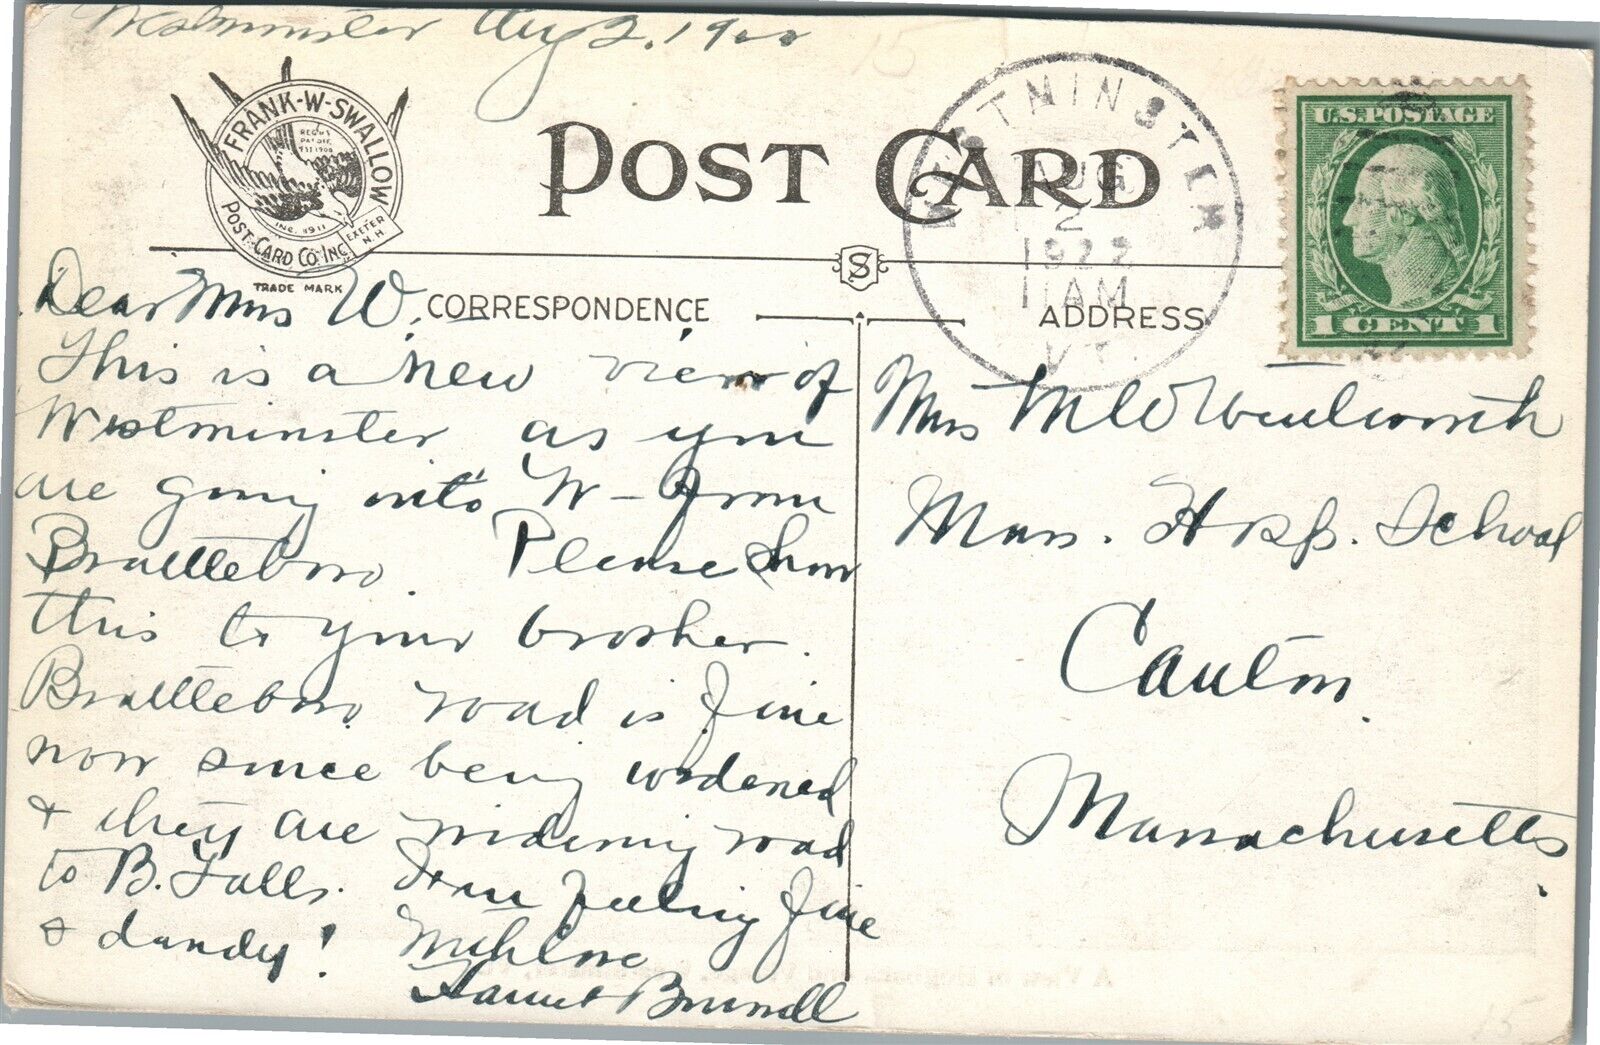 Westminster Aug 2, 1922
FRANK-W-SWALLOW
POST CARD CO. INC.
EXETER
N.H.
INC. 1911
TRADE MARK
POST CARD
WESTMINSTER
AUG
2
1922
11 AM
VT.
U.S. POSTAGE
1 CENT 1
S
CORRESPONDENCE
ADDRESS
Dear Mrs W.
This is a new view of
Westminster as you
are going into W - from
Brattleboro Please show
this to your brother.
Brattleboro road is fine
now since being widened
& they are widening road
to B. Falls. I am feeling fine
& dandy! With love
Harriet
Mrs M W Wentworth
Mass. Hosp. School
Canton.
Massachusetts.
15
15